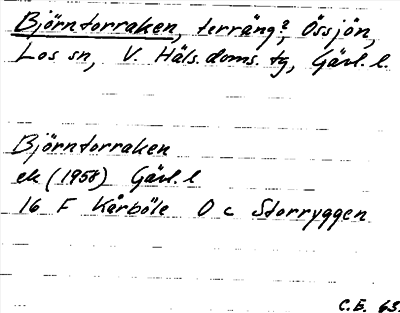 Björntorraken, terräng?, Össjön,
Los sn, V. Häls. doms. tg, Gävl. l.
Björntorraken
ek (1958) Gävl. l
16 F Kårböle O c Storryggen
C.E. 63.